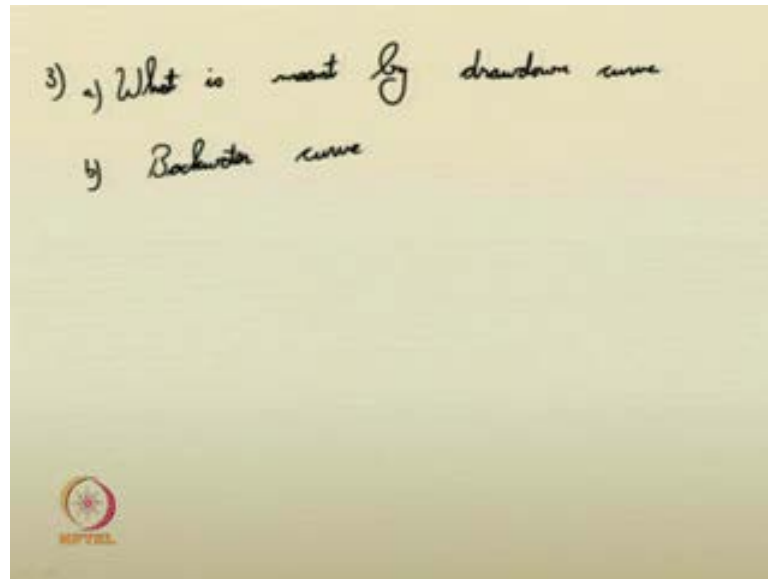 3) a) What is meant by drawdown curve
b) Backwater curve
NPTEL